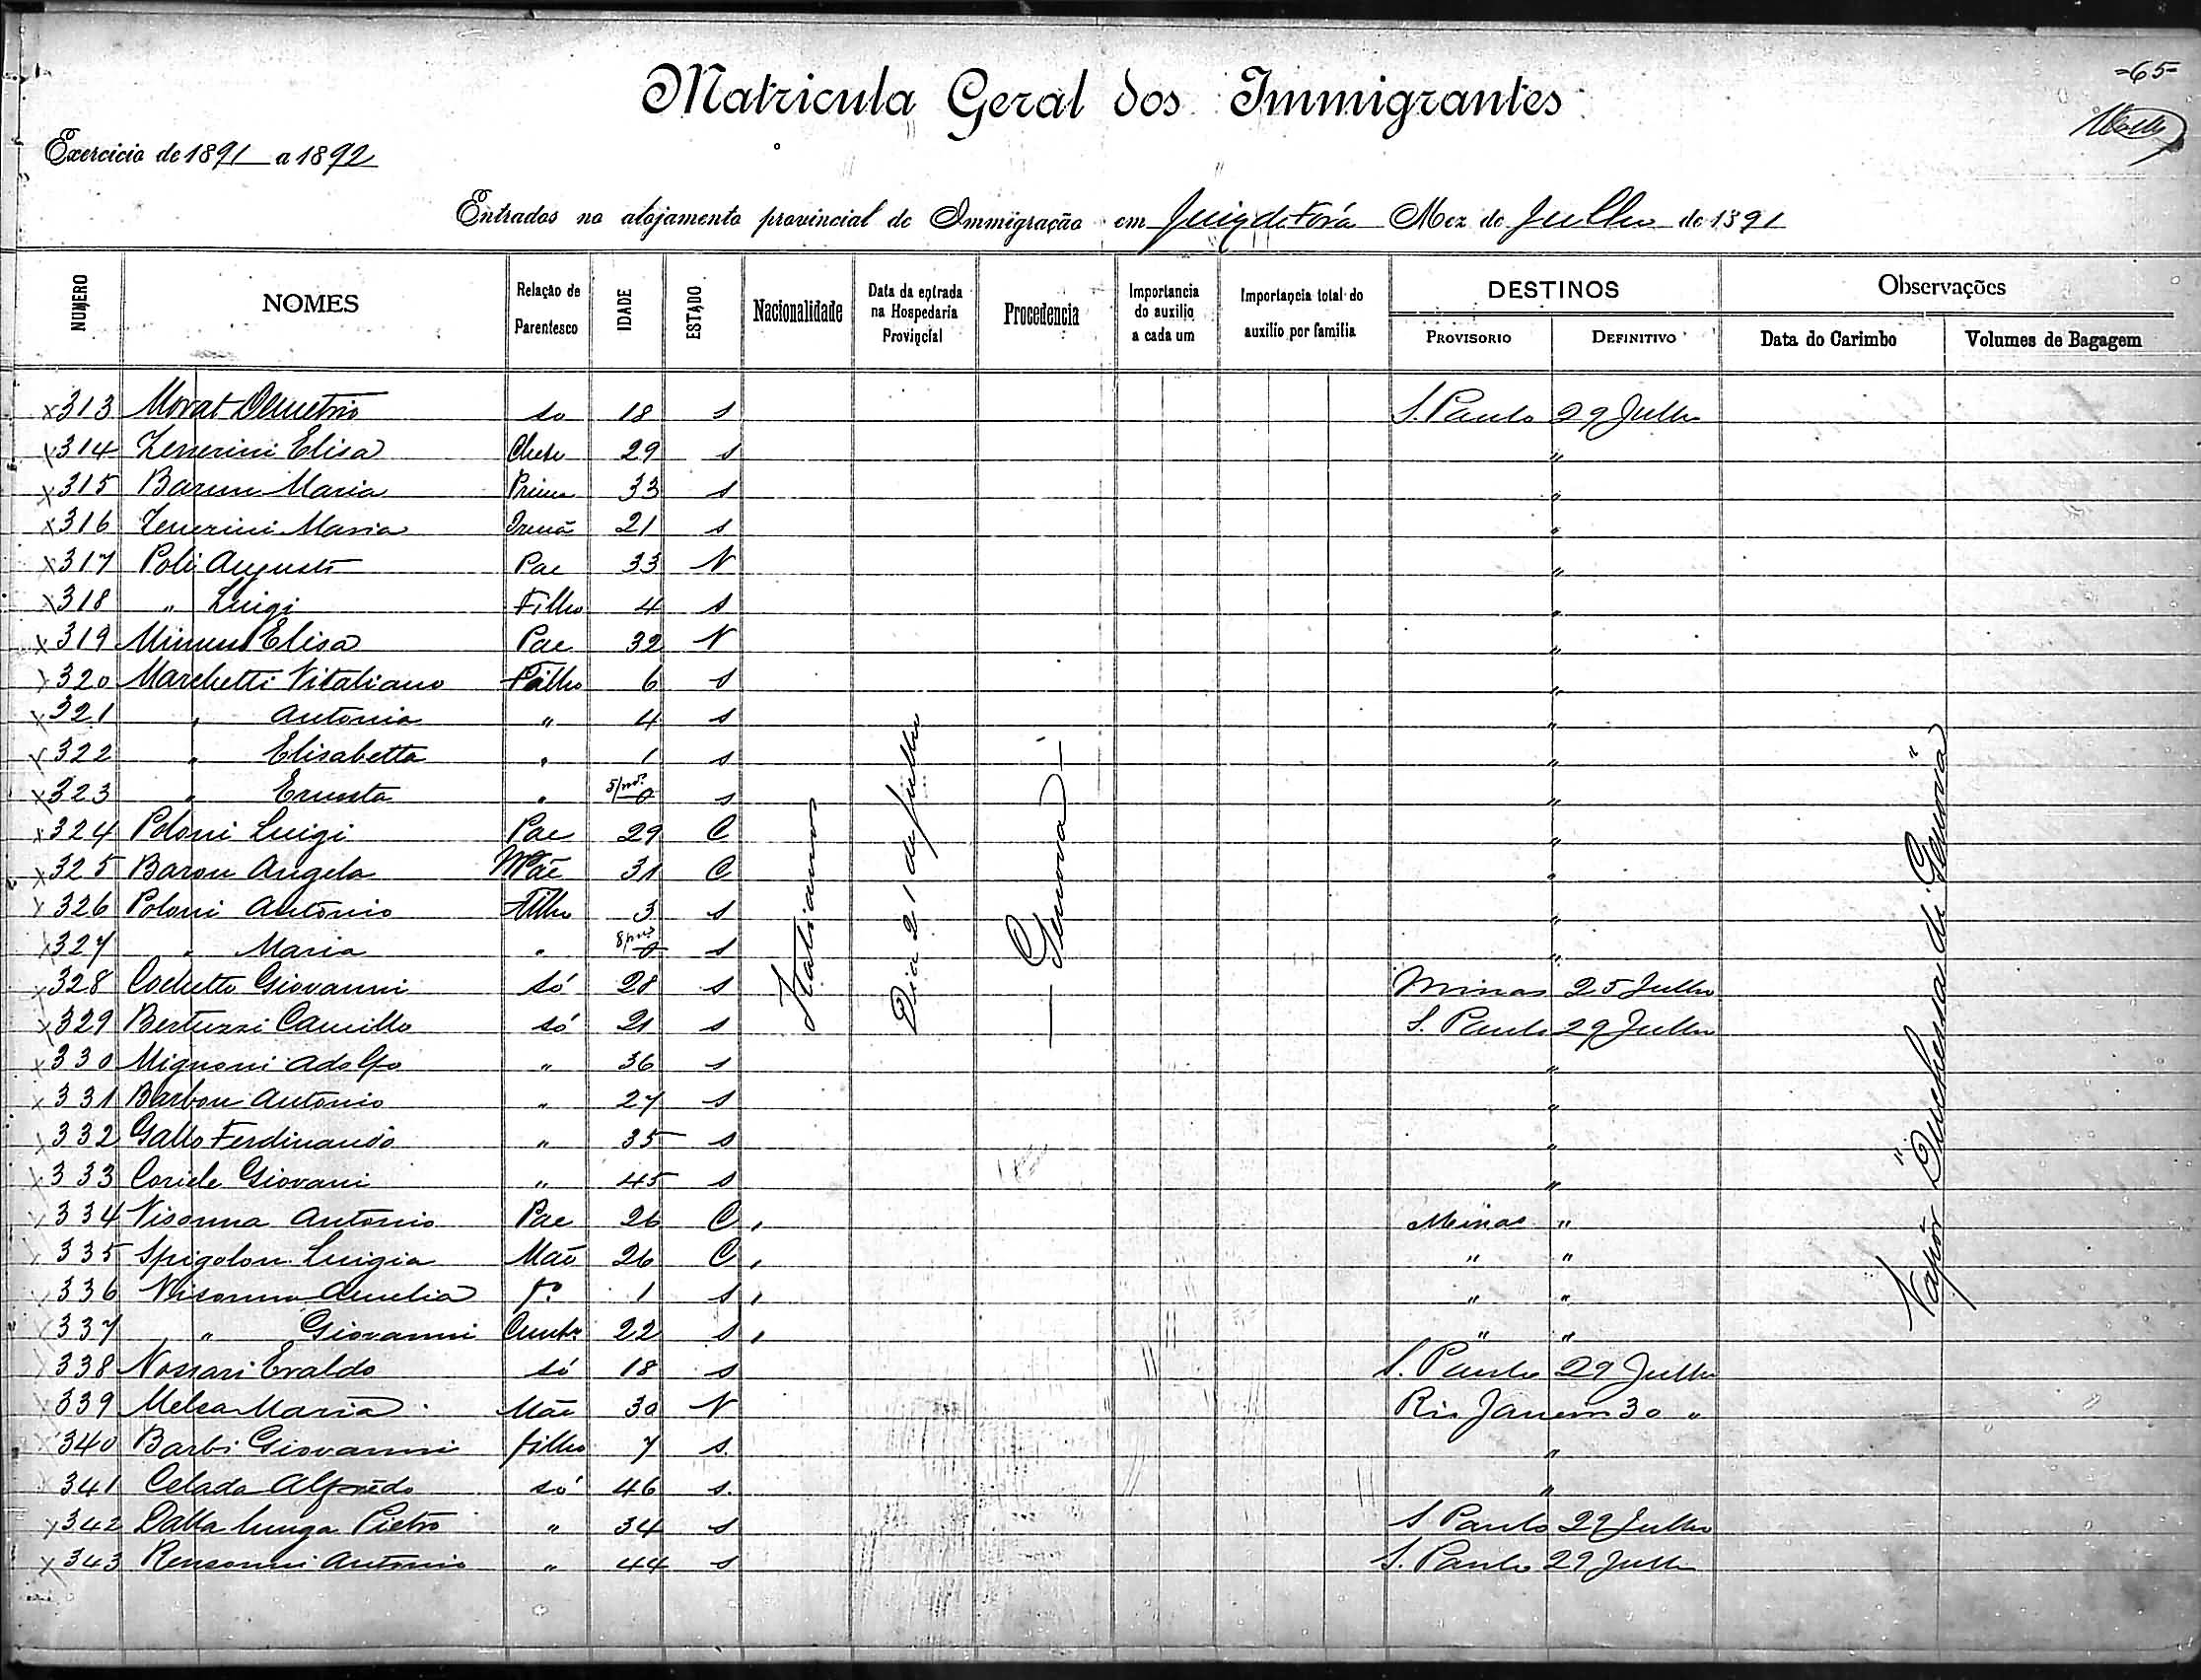 =65=
Matricula Geral dos Immigrantes
Exercicio de 1891 a 1892
Entrados no alojamento provincial de Immigração em Juiz de Fóra Mez de Julho de 1891
NUMERO NOMES Relação de Parentesco IDADE ESTADO Nacionalidade Data da entrada na Hospedaria Provincial Procedencia Importancia do auxilio a cada um Importancia total do auxilio por familia DESTINOS Observações
PROVISORIO DEFINITIVO Data do Carimbo Volumes de Bagagem
x313 Morat Demetrio so 18 s S. Paulo 29 Julho
x314 Zenerini Elisa Chefe 29 s "
x315 Baron Maria Prima 33 s "
x316 Zenerini Maria Irmã 21 s "
x317 Poli Augusto Pae 33 V "
x318 " Luigi Filho 4 s "
x319 Elisa Pae 32 V "
x320 Marchetti Vitaliano Filho 6 s "
x321 " Antonia " 4 s "
x322 " Elisabetta " 1 s "
x323 " Erunta " 5/ms 0 s "
x324 Poloni Luigi Pae 29 C "
x325 Baron Angela Mãe 31 C "
x326 Poloni Antonio Filho 3 s "
x327 " Maria " 8/ms 0 s "
x328 Cochetto Giovanni Só 28 s Minas 25 Julho
x329 Bertuzzi Camillo só 21 s S. Paulo 29 Julho
x330 Mignoni Adolfo " 36 s "
x331 Barbon Antonio " 27 s "
x332 Gallo Ferdinando " 35 s "
x333 Coriele Giovani " 45 s "
x334 Visonna Antonio Pae 26 C, Minas "
x335 Spigolon Luigia Mãe 26 C, " "
x336 Visonna Amelia fª 1 s, " "
x337 " Giovanni Cunhº 22 s, " "
x338 Nossari Evaldo só 18 s S. Paulo 29 Julho
x339 Melea Maria Mãe 30 V Rio Janeiro 30 "
x340 Barbi Giovanni filho 7 s. "
341 Celada Alfredo só 46 s. "
x342 Dalla lunga Pietro " 34 s S Paulo 29 Julho
x343 Rensonni Antonio " 44 s S. Paulo 29 Julho
Italianos
Dia 21 de Julho
— Genova —
Vapôr "Duchessa di Genova"